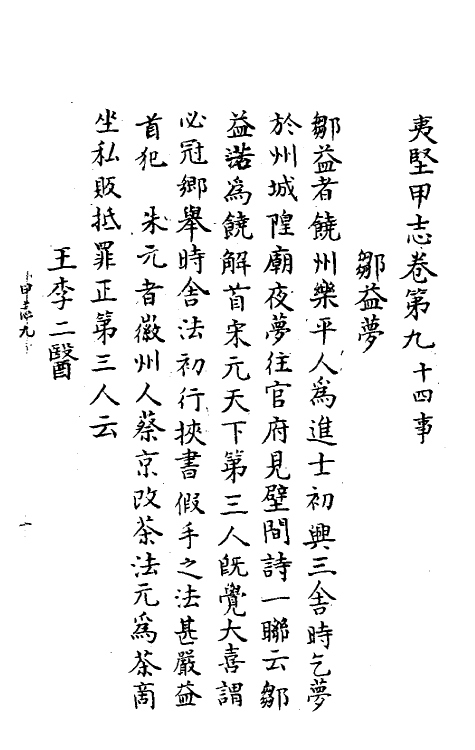 夷堅甲志卷第九 十四事
鄒益夢
鄒益者饒州樂平人爲進士初興三舍時乞夢
於州城隍廟夜夢往官府見壁間詩一聯云鄒
益諾爲饒解首宋元天下第三人既覺大喜謂
必冠鄉舉時舍法初行挾書假手之法甚嚴益
首犯 朱元者徽州人蔡京改茶法元爲茶商
坐私販抵罪正第三人云
王李二醫
甲志九
一